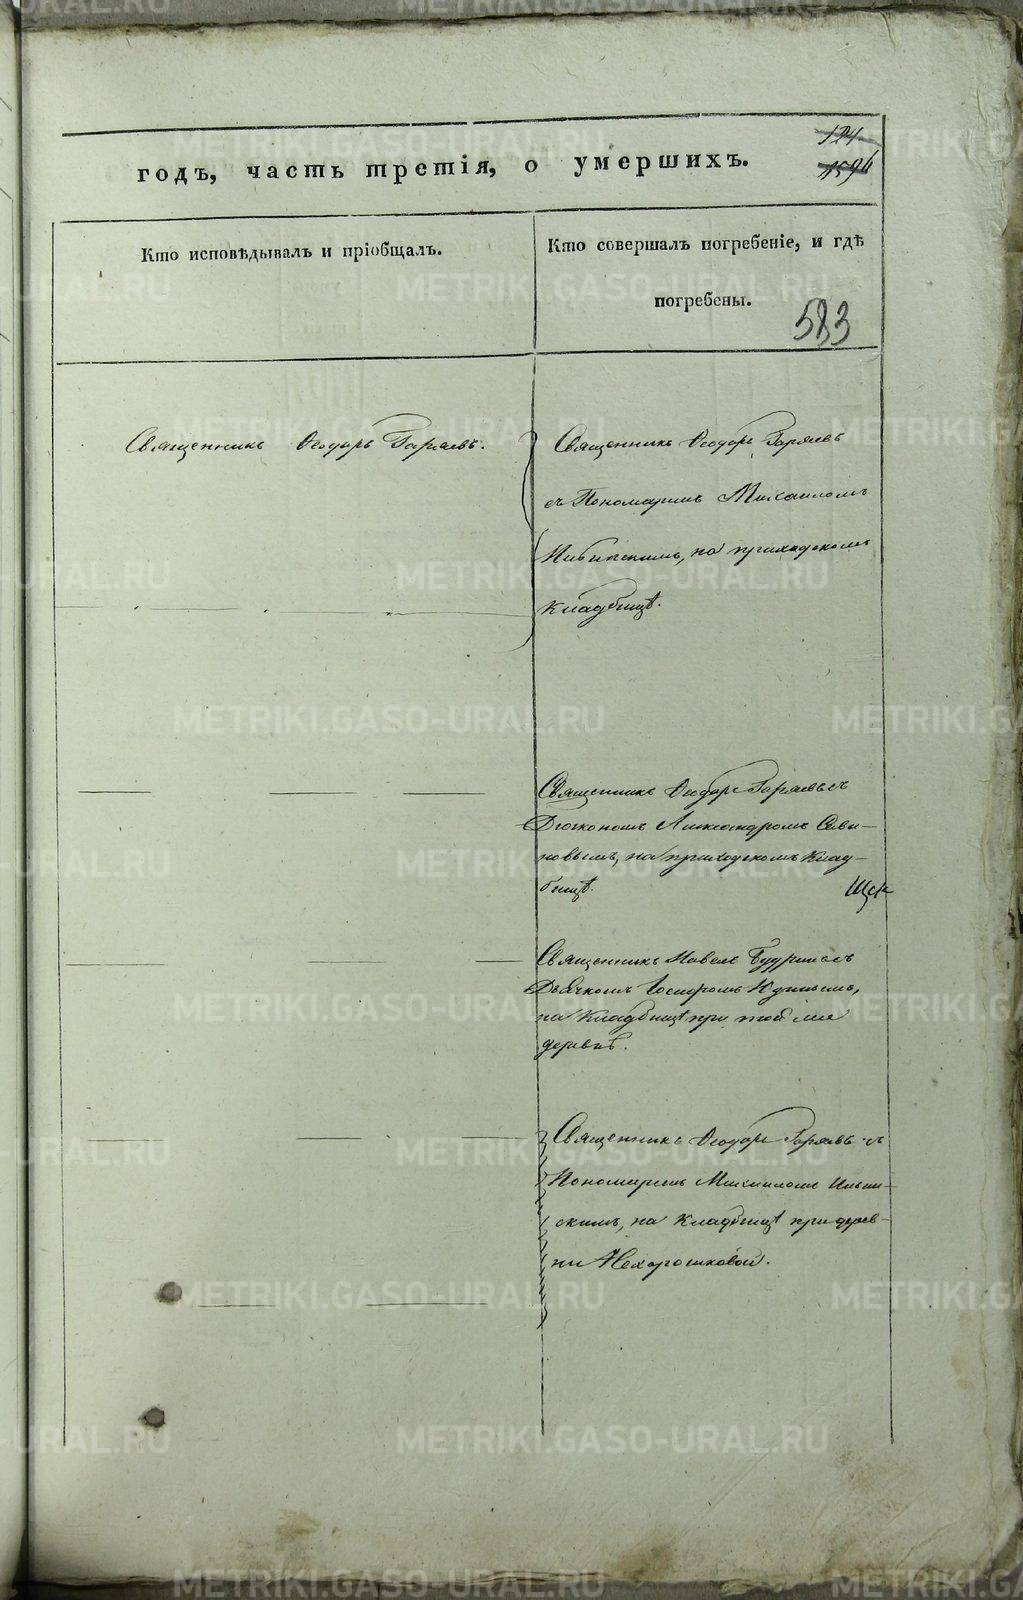 годъ, часть третія, о умершихъ.
124
159
Кто исповѣдывалъ и пріобщалъ.
Кто совершалъ погребеніе, и гдѣ
погребены.
583
Священникъ Ѳеодоръ Гаряевъ.
Священникъ Ѳеодоръ Гаряевъ
съ Пономаремъ Михаиломъ
на приходскомъ
кладбищѣ.
Священникъ Ѳеодоръ Гаряевъ съ
Діакономъ Александромъ Сави-
новымъ, на приходскомъ клад-
бищѣ.
Священникъ Павелъ Будринъ съ
Дьячкомъ
на кладбищѣ при той же
деревнѣ.
Священникъ Ѳеодоръ Гаряевъ съ
Пономаремъ Михаиломъ Ильин-
скимъ, на кладбищѣ при дерев-
ни Нехорошковой.
METRIKI.GASO-URAL.RU